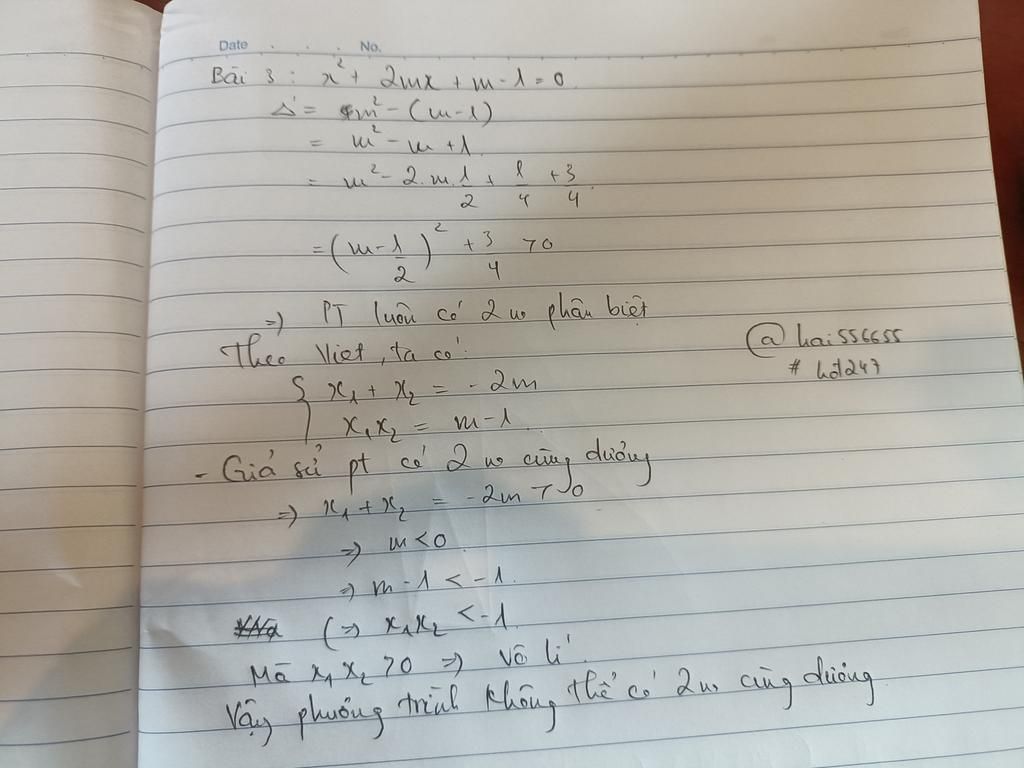 Date . . . No.
Bài 3 : x² + 2mx + m - 1 = 0
Δ' = m² - (m - 1)
= m² - m + 1
= m² - 2.m.1/2 + 1/4 + 3/4
= (m - 1/2)² + 3/4 > 0
=> PT luôn có 2 no phân biệt
Theo Viet, ta có:
{ x₁ + x₂ = - 2m
x₁x₂ = m - 1
- Giả sử pt có 2 no cùng dương
=> x₁ + x₂ = -2m > 0
=> m < 0
=> m - 1 < -1.
(=> x₁x₂ < -1
Mà x₁x₂ > 0 => Vô lí.
Vậy phương trình không thể có 2 no cùng dương
@hai556655
# hd247